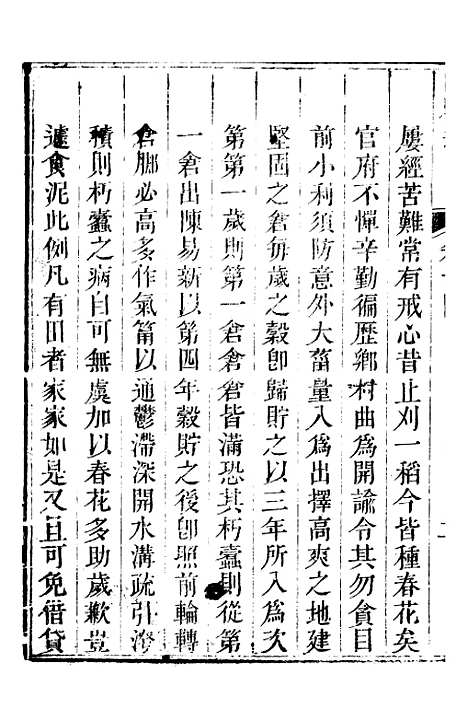 屢經苦難常有戒心昔止刈一稻今皆種春花矣
官府不憚辛勤徧歷鄉村曲爲開諭令其勿貪目
前小利須防意外大菑量入爲出擇高爽之地建
堅固之倉每歲之穀卽歸貯之以三年所入爲次
第第一歲則第一倉倉倉皆滿恐其朽蠹則從第
一倉出陳易新以第四年穀貯之後卽照前輪轉
倉厫必高多作氣筩以通鬱滯深開水溝疏引滲
積則朽蠹之病自可無虞加以春花多助歲歉豈
遽食泥此例凡有田者家家如是又且可免借貸